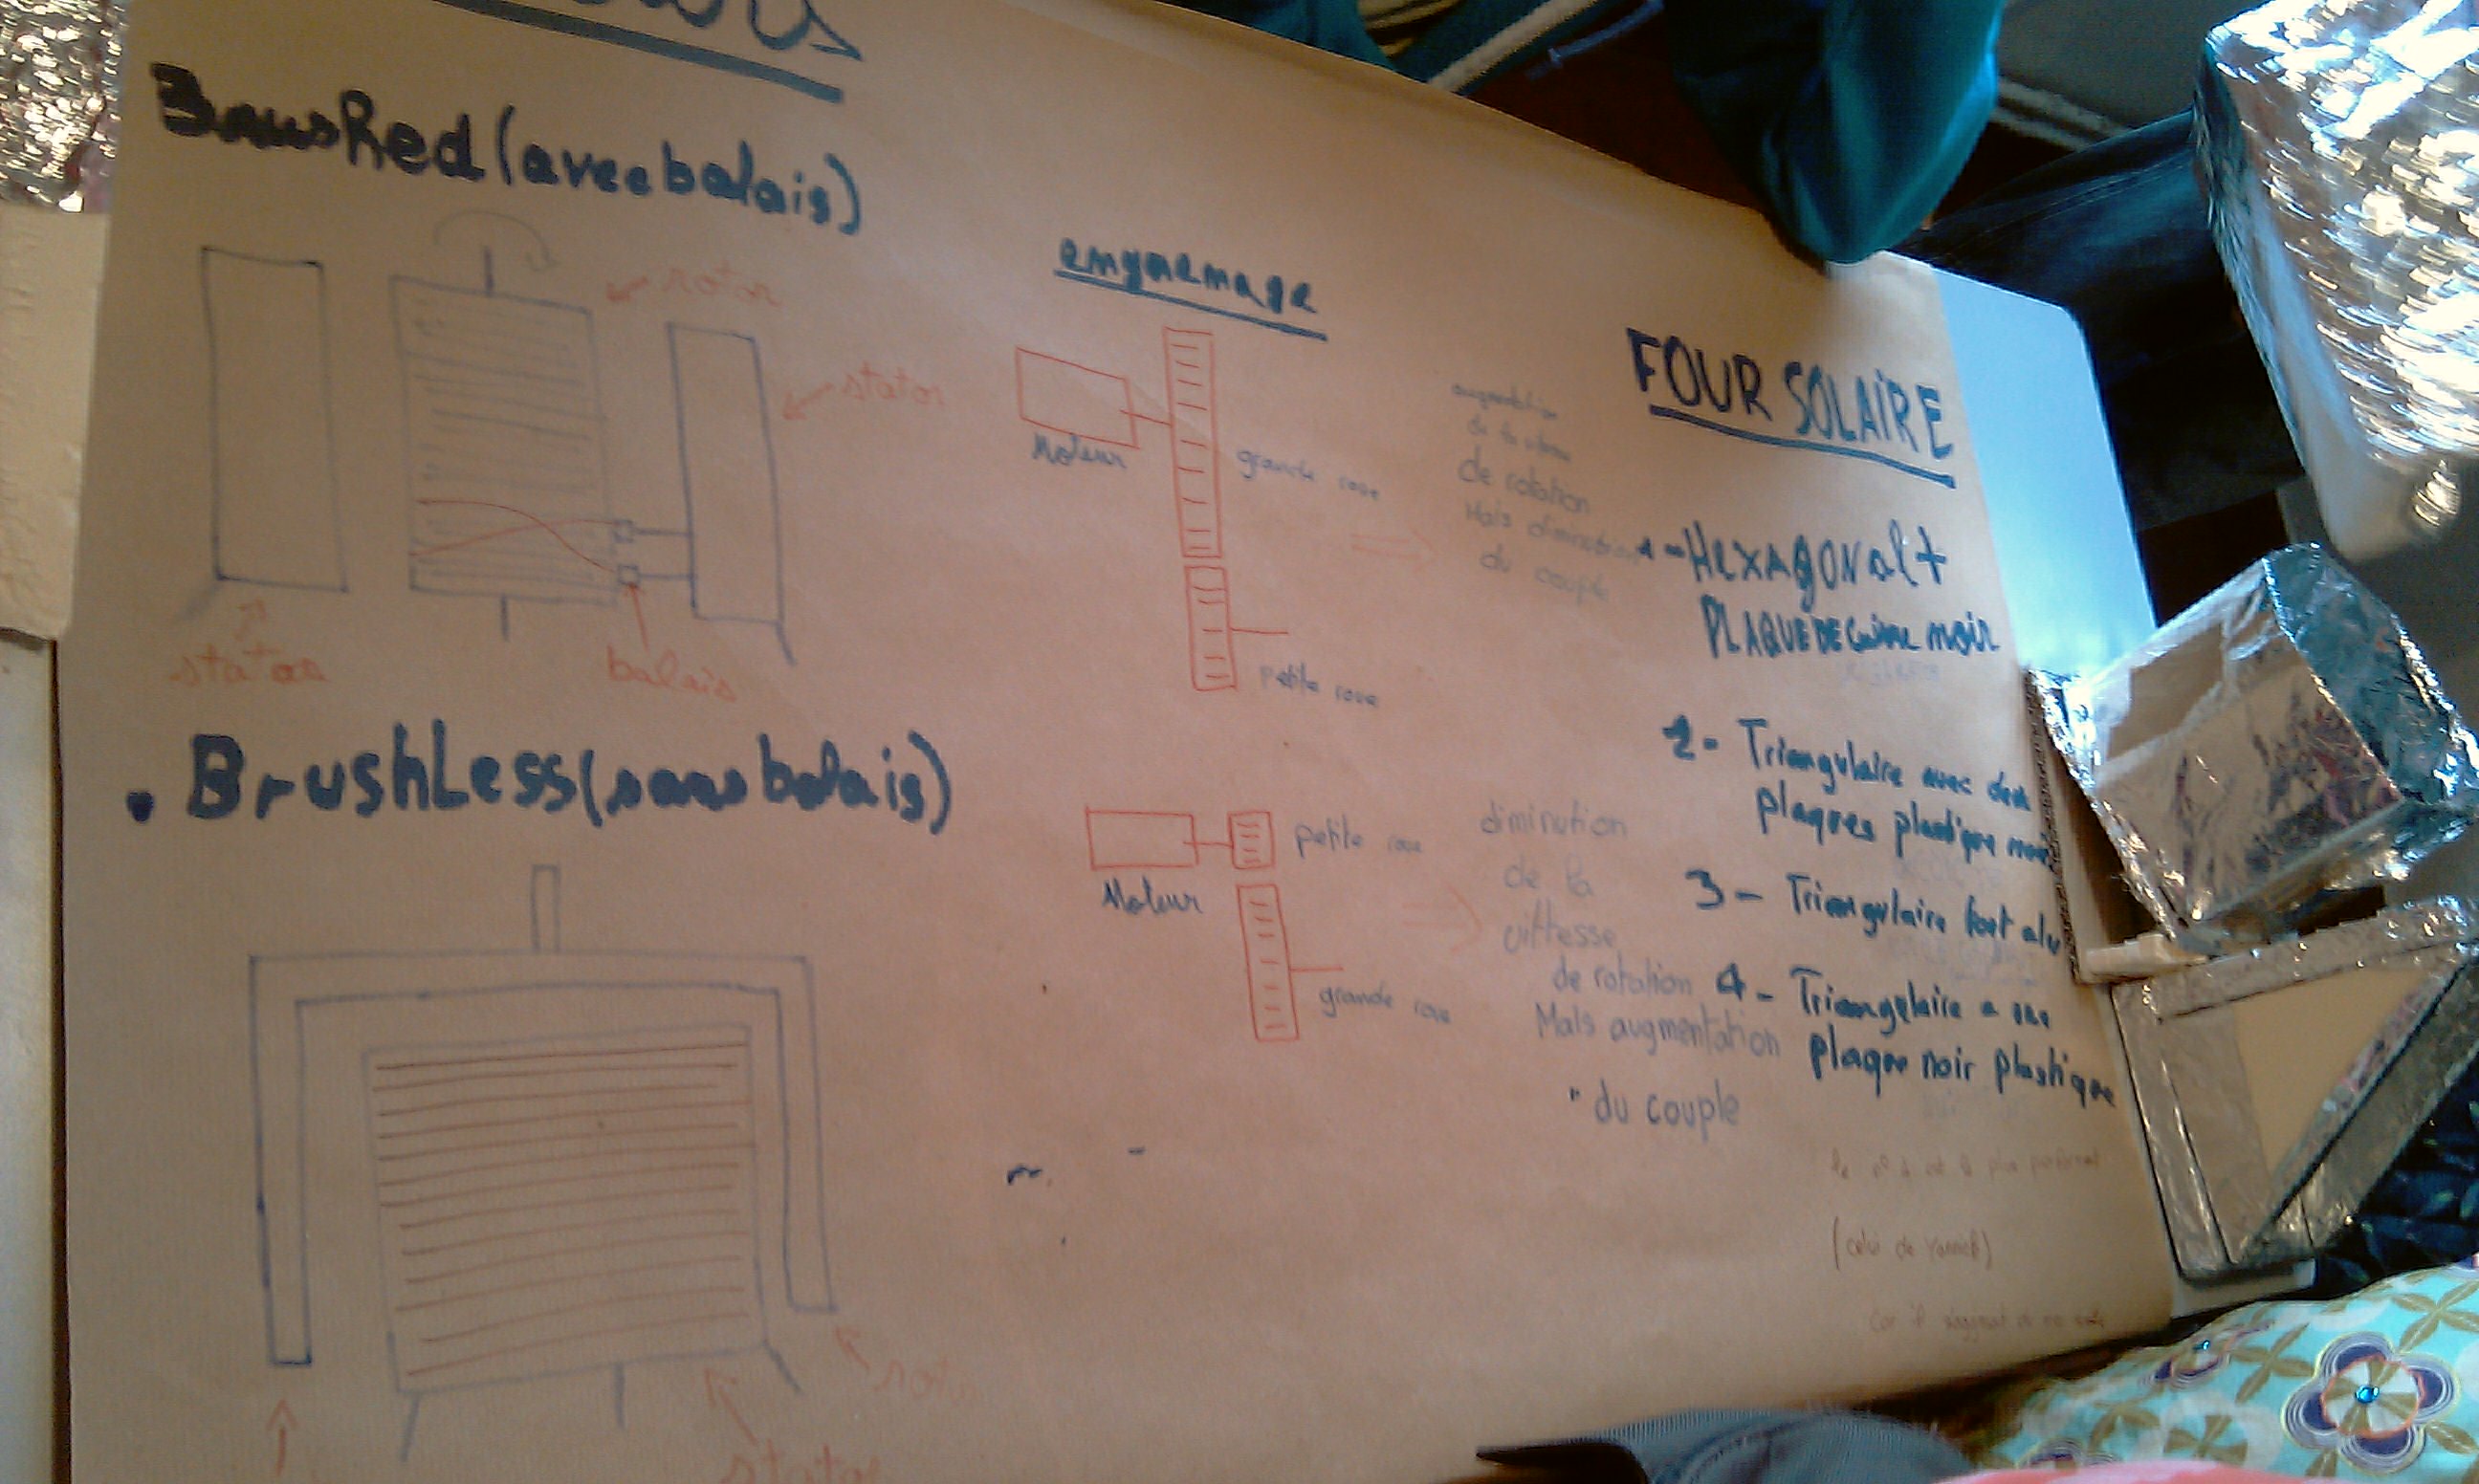 BrusRed (avec balais)
rotor
stator
stator
balais
. BrushLess (sans balais)
rotor
stator
engrenage
Moteur
grande roue
petite roue
augmentation
de la vitesse
de rotation
Mais diminution
du couple
Moteur
petite roue
grande roue
diminution
de la
vittesse
de rotation
Mais augmentation
du couple
FOUR SOLAIRE
1 - HEXAGONal +
PLAQUE DE Cuivre noir
2 - Triangulaire avec deux
plaques plastique noir
3 - Triangulaire tout alu
4 - Triangulaire a une
plaque noir plastique
le n° 4 est le plus
(celui de Yannick)
car il